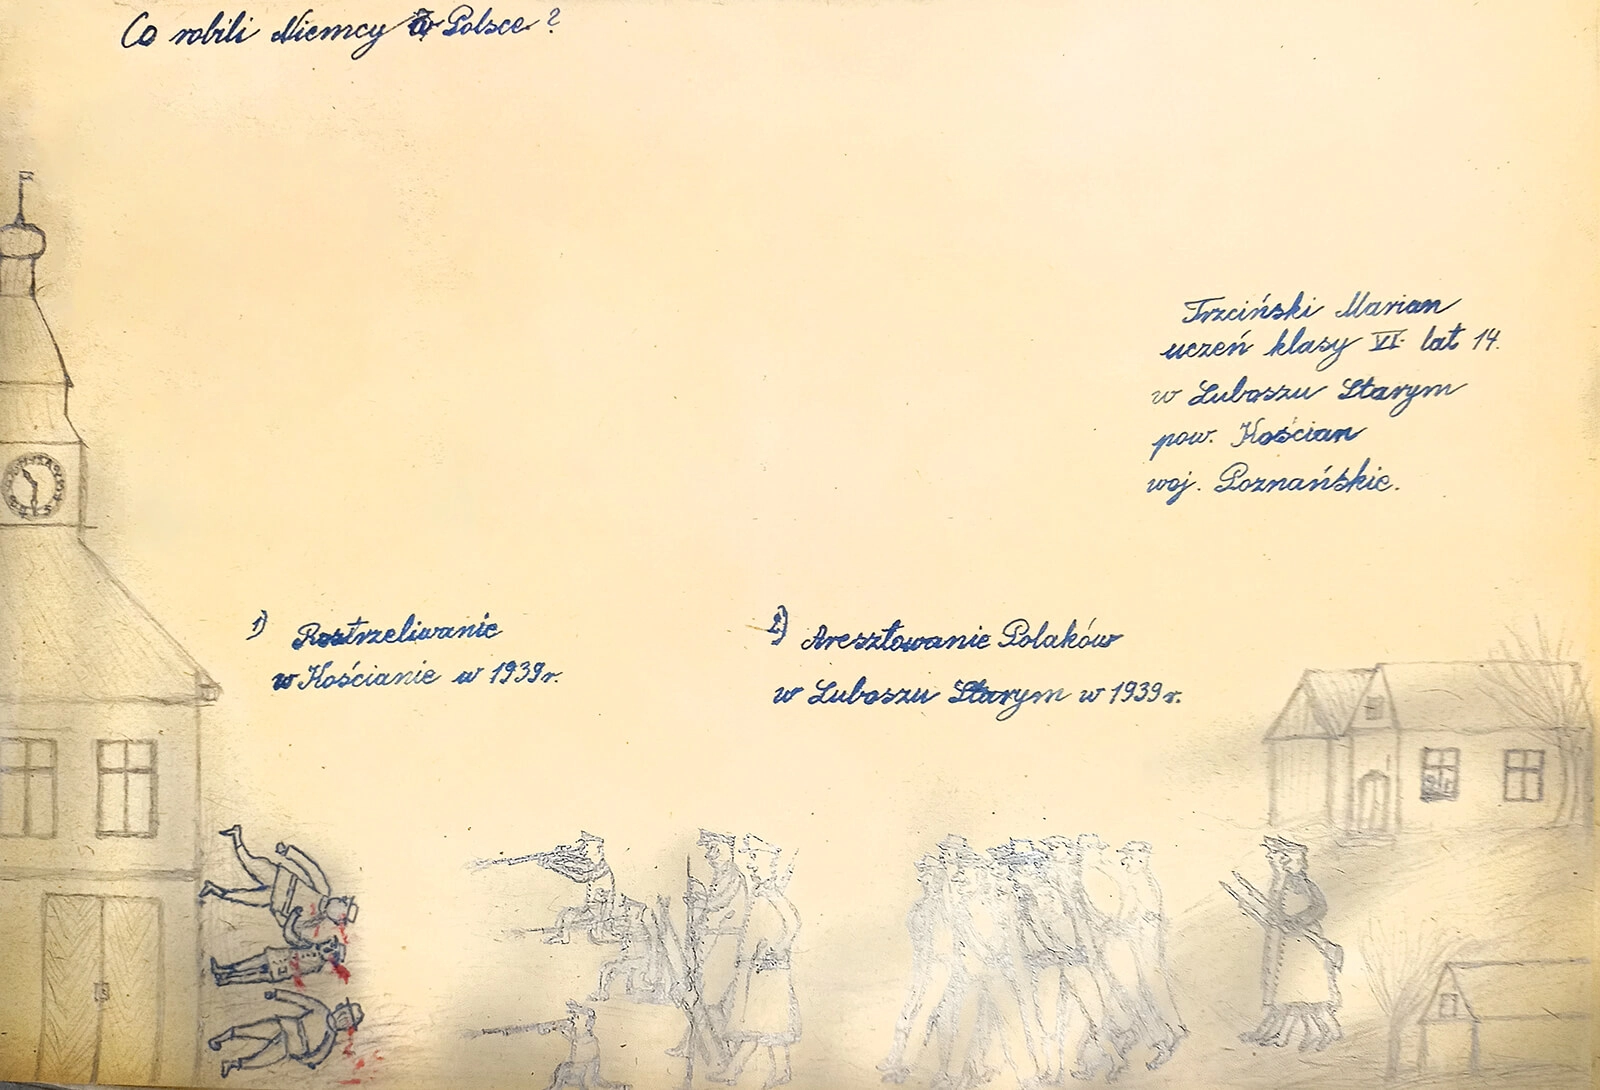 Co robili Niemcy w Polsce?
Trzciński Marian
uczeń klasy VI lat 14.
w Luboszu Starym
pow. Kościan
woj. Poznańskie.
1) Rostrzeliwanie
w Kościanie w 1939r.
2) Aresztowanie Polaków
w Luboszu Starym w 1939r.